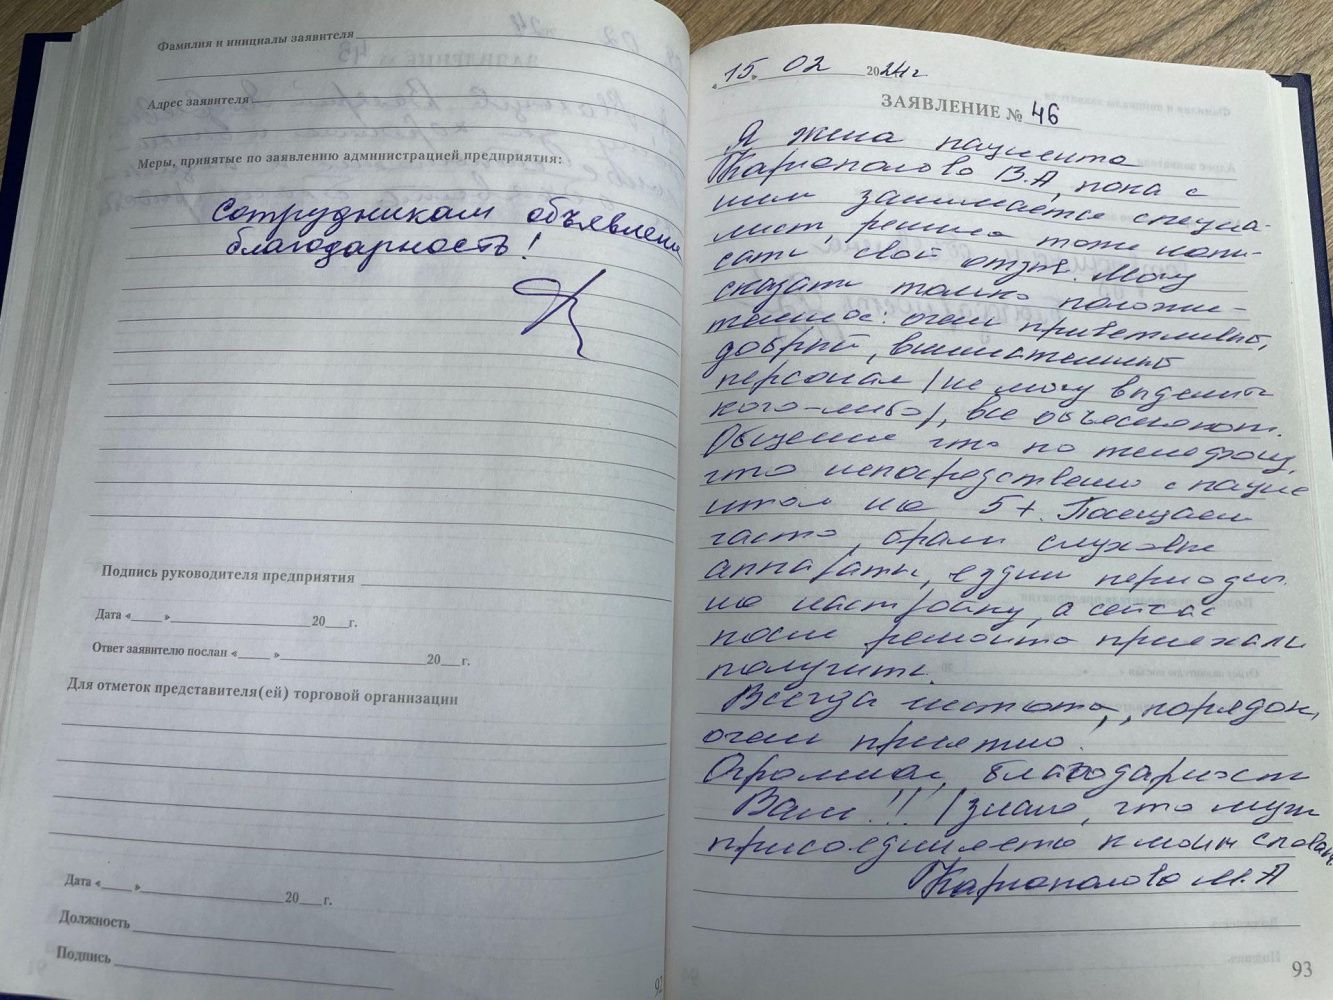 Фамилия и инициалы заявителя
Адрес заявителя
Меры, принятые по заявлению администрацией предприятия:
Сотрудникам объявлена
благодарность!
Подпись руководителя предприятия
Дата «____» ____ 20___г.
Ответ заявителю послан «____» ____ 20___г.
Для отметок представителя(ей) торговой организации
Дата «____» ____ 20___г.
Должность
Подпись
92
«15» 02 2024г
ЗАЯВЛЕНИЕ № 46
Я жена пациента
Каргополова В.А, пока с
ним занимается специа-
лист, решила тоже напи-
сать свой отзыв. Могу
сказать только положи-
тельное: очень приветливый,
добрый, внимательный
персонал (не могу выделить
кого-либо), все объясняют.
Общение что по телефону,
что непосредственно с пацие
нтом на 5+. Посещаем
часто, брали слуховые
аппараты, ездим периодич.
на настройку, а сейчас
после ремонта приехали
получить.
Всегда чистота, порядок,
очень приятно.
Огромная благодарность
Вам!!! (знаю, что муж
присоединяется к моим словам
Каргополова М.А
93